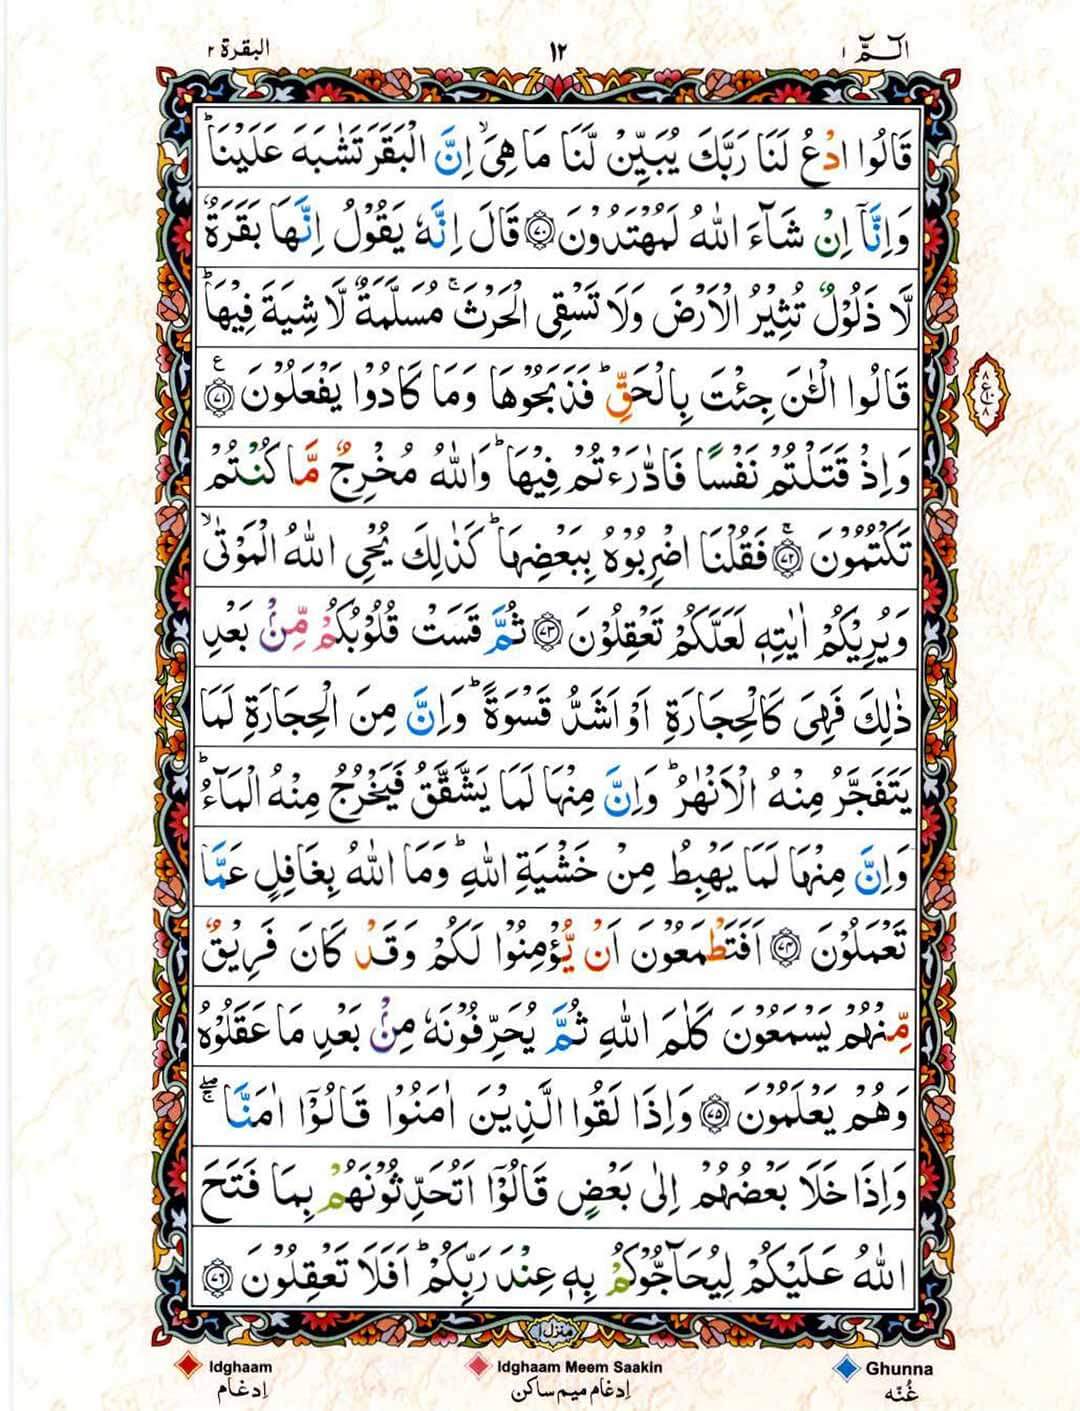 الٓـمّٓ ١ ١٢ البقرة ٢
قَالُوا ادْعُ لَنَا رَبَّكَ يُبَيِّنْ لَّنَا مَا هِيَۙ اِنَّ الْبَقَرَ تَشٰبَهَ عَلَيْنَاؕ
وَاِنَّاۤ اِنْ شَآءَ اللّٰهُ لَمُهْتَدُوْنَ ﴿۷۰﴾ قَالَ اِنَّهٗ يَقُوْلُ اِنَّهَا بَقَرَةٌ
لَّا ذَلُوْلٌ تُثِيْرُ الْاَرْضَ وَلَا تَسْقِى الْحَرْثَۚ مُسَلَّمَةٌ لَّا شِيَةَ فِيْهَاؕ
قَالُوا الْـٰٔنَ جِئْتَ بِالْحَقِّؕ فَذَبَحُوْهَا وَمَا كَادُوْا يَفْعَلُوْنَ ﴿۷۱﴾ ع
وَاِذْ قَتَلْتُمْ نَفْسًا فَادّٰرَءْتُمْ فِيْهَاؕ وَاللّٰهُ مُخْرِجٌ مَّا كُنْتُمْ
تَكْتُمُوْنَۚ ﴿۷۲﴾ فَقُلْنَا اضْرِبُوْهُ بِبَعْضِهَاؕ كَذٰلِكَ يُحْىِ اللّٰهُ الْمَوْتٰىۙ
وَيُرِيْكُمْ اٰيٰتِهٖ لَعَلَّكُمْ تَعْقِلُوْنَ ﴿۷۳﴾ ثُمَّ قَسَتْ قُلُوْبُكُمْ مِّنْۢ بَعْدِ
ذٰلِكَ فَهِىَ كَالْحِجَارَةِ اَوْ اَشَدُّ قَسْوَةًؕ وَاِنَّ مِنَ الْحِجَارَةِ لَمَا
يَتَفَجَّرُ مِنْهُ الْاَنْهٰرُؕ وَاِنَّ مِنْهَا لَمَا يَشَّقَّقُ فَيَخْرُجُ مِنْهُ الْمَآءُؕ
وَاِنَّ مِنْهَا لَمَا يَهْبِطُ مِنْ خَشْيَةِ اللّٰهِؕ وَمَا اللّٰهُ بِغَافِلٍ عَمَّا
تَعْمَلُوْنَ ﴿۷۴﴾ اَفَتَطْمَعُوْنَ اَنْ يُّؤْمِنُوْا لَكُمْ وَقَدْ كَانَ فَرِيْقٌ
مِّنْهُمْ يَسْمَعُوْنَ كَلٰمَ اللّٰهِ ثُمَّ يُحَرِّفُوْنَهٗ مِنْۢ بَعْدِ مَا عَقَلُوْهُ
وَهُمْ يَعْلَمُوْنَ ﴿۷۵﴾ وَاِذَا لَقُوا الَّذِيْنَ اٰمَنُوْا قَالُوْۤا اٰمَنَّاۖۚ
وَاِذَا خَلَا بَعْضُهُمْ اِلٰى بَعْضٍ قَالُوْۤا اَتُحَدِّثُوْنَهُمْ بِمَا فَتَحَ
اللّٰهُ عَلَيْكُمْ لِيُحَآجُّوْكُمْ بِهٖ عِنْدَ رَبِّكُمْؕ اَفَلَا تَعْقِلُوْنَ ﴿۷۶﴾
۸ ع ۱۰ ۸
منزل ۱
Idghaam Idghaam Meem Saakin Ghunna
اِدغَام اِدغَام میم ساکن غُنّه